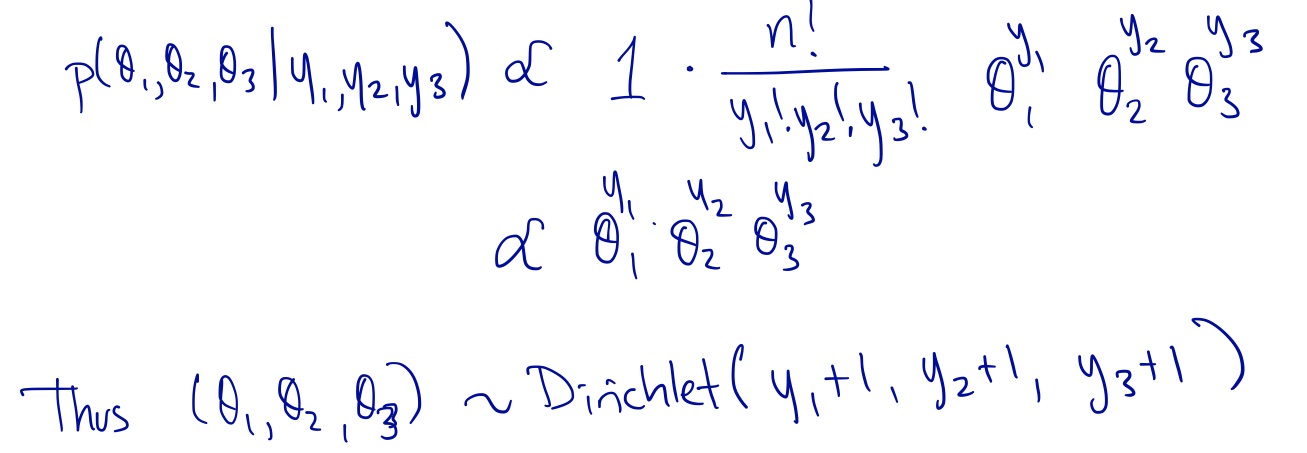 p(θ₁,θ₂,θ₃|y₁,y₂,y₃) ∝ 1 · n!/(y₁!y₂!y₃!) θ₁^y₁ θ₂^y₂ θ₃^y₃
∝ θ₁^y₁ · θ₂^y₂ θ₃^y₃
Thus (θ₁,θ₂,θ₃) ~ Dirichlet(y₁+1, y₂+1, y₃+1)